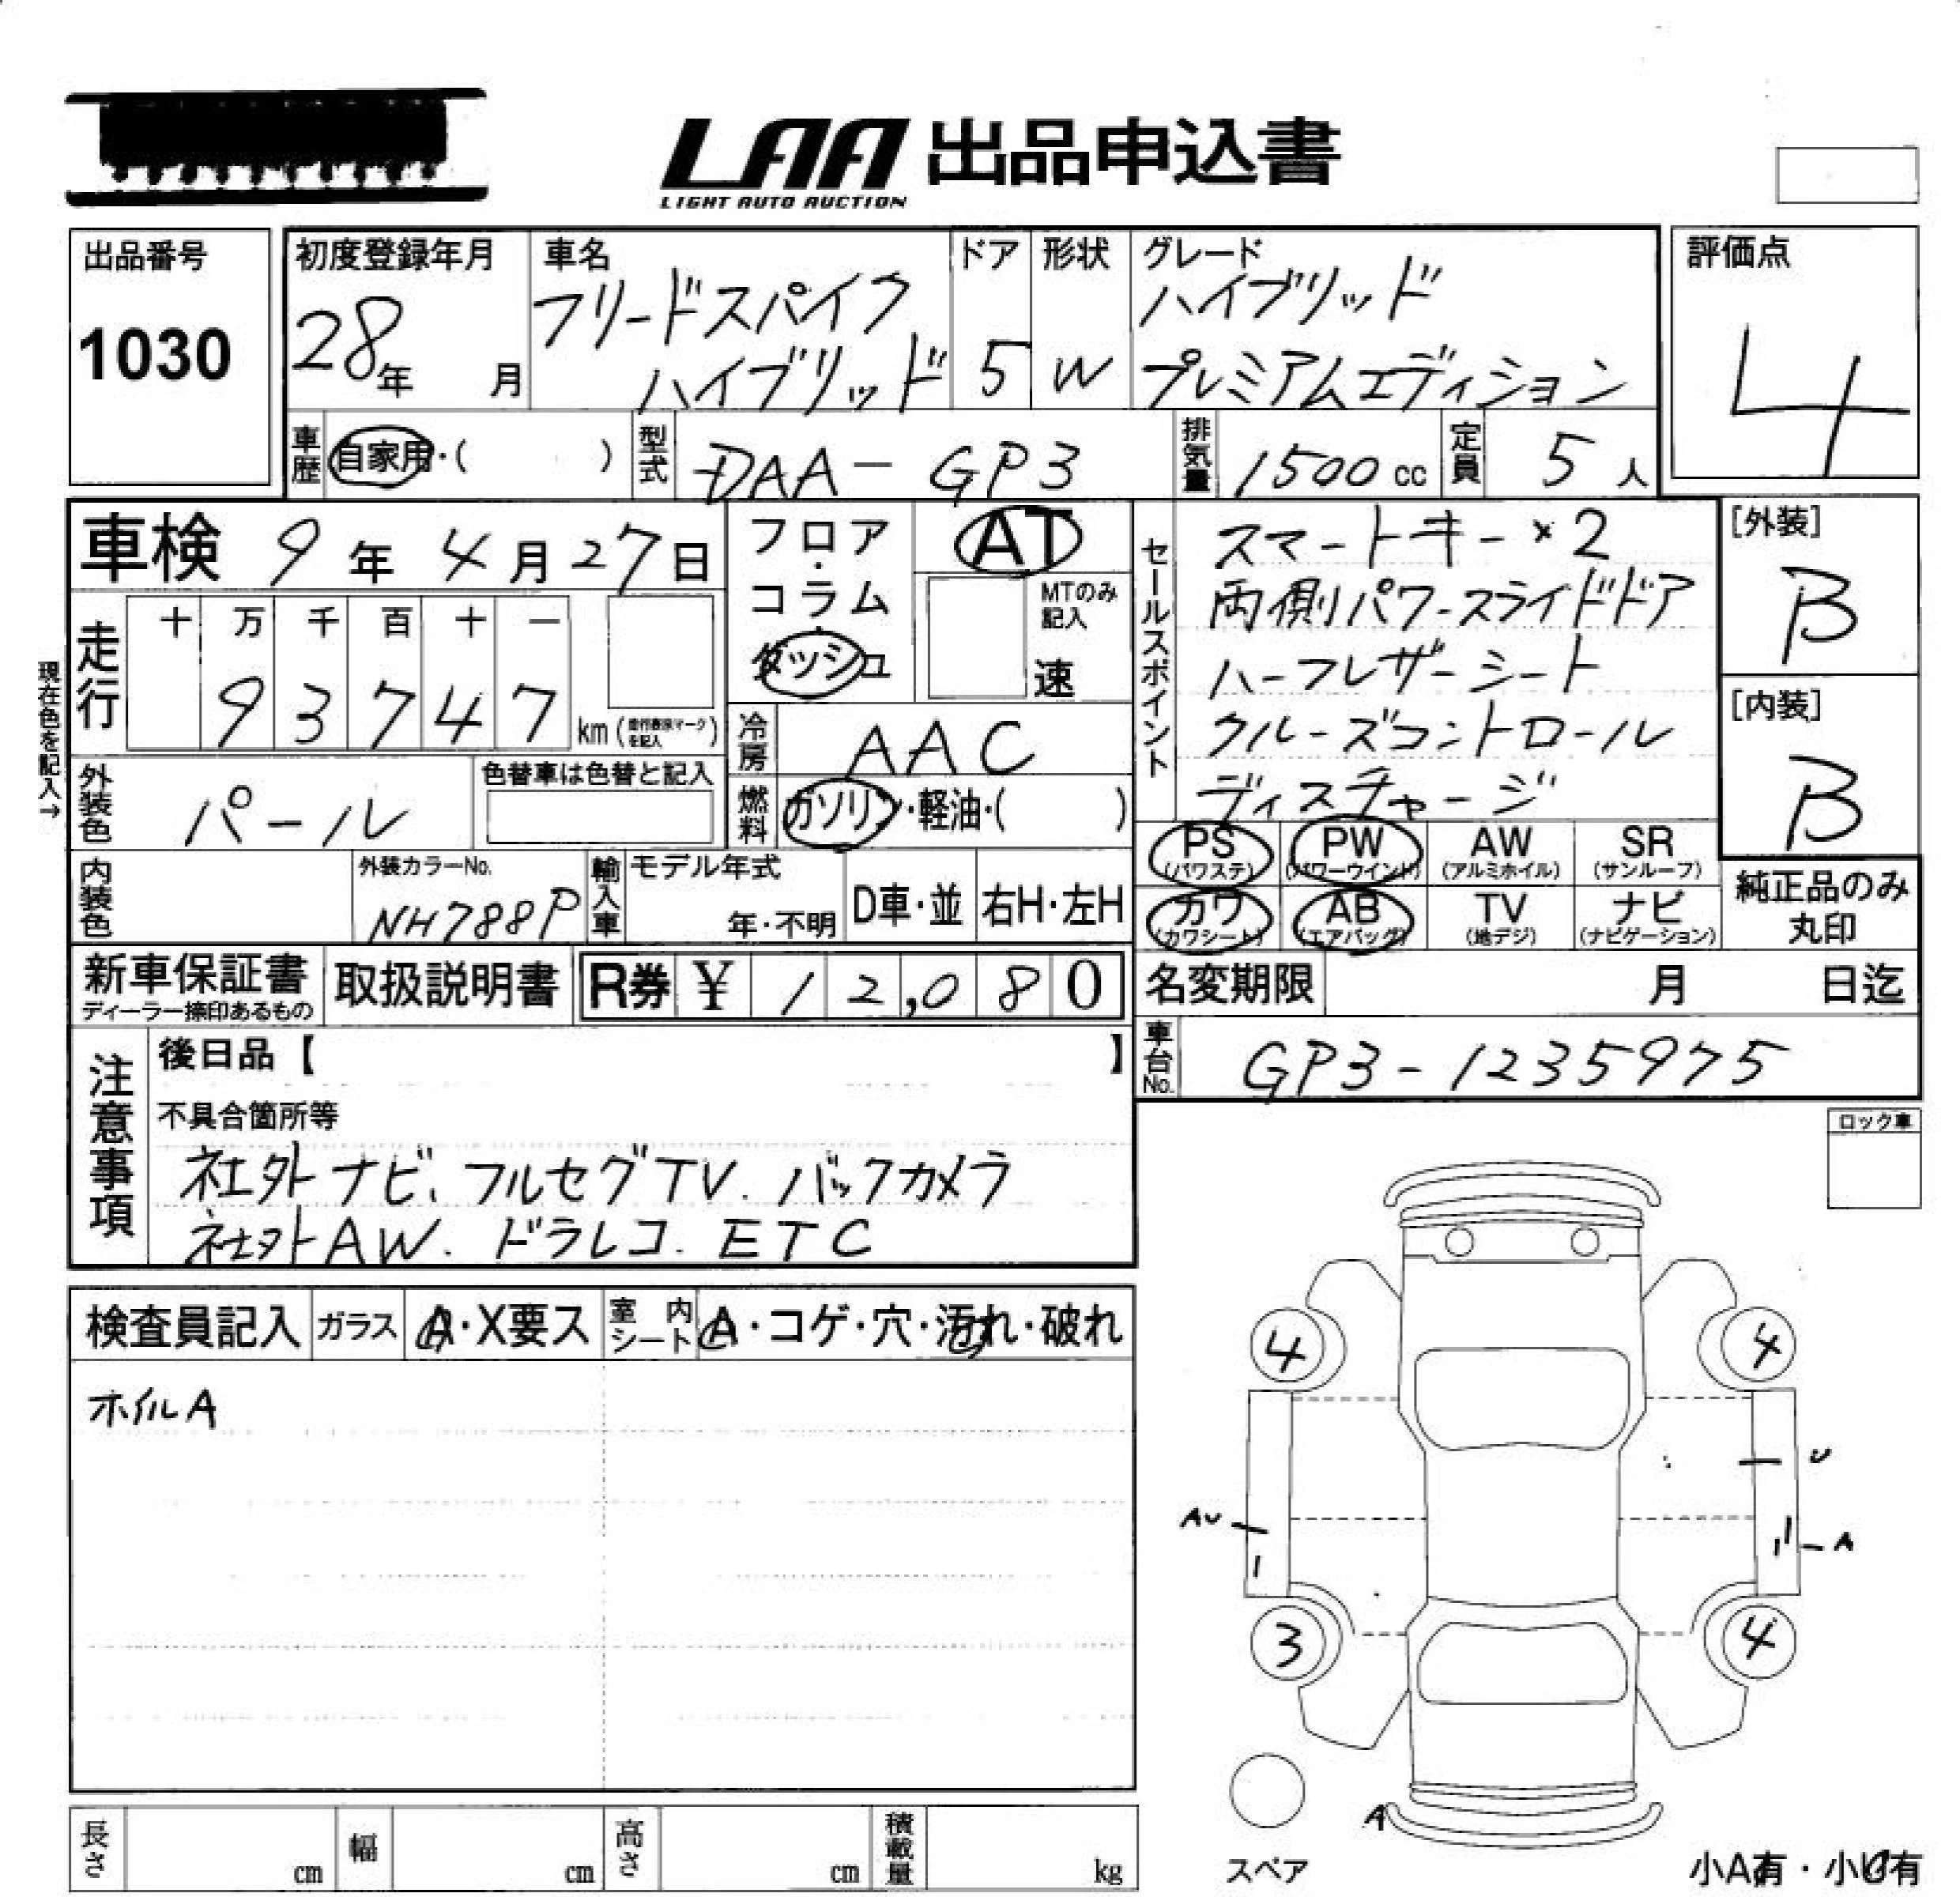 LAA 出品申込書
LIGHT AUTO AUCTION
出品番号
1030
初度登録年月
28年 月
車名
フリードスパイク
ハイブリッド
ドア
5
形状
W
グレード
ハイブリッド
プレミアムエディション
評価点
4
車歴
自家用・( )
型式
DAA-GP3
排気量
1500cc
定員
5人
車検 9年4月27日
フロア・コラム・ダッシュ
AT
MTのみ記入
速
セールスポイント
スマートキー×2
両側パワースライドドア
ハーフレザーシート
クルーズコントロール
ディスチャージ
[外装]
B
[内装]
B
現在色を記入→
走行
十 万 千 百 十 一
9 3 7 4 7
km(走行表示マークを記入)
冷房
AAC
外装色
パール
色替車は色替と記入
燃料
ガソリン・軽油・( )
PS
(パワステ)
PW
(パワーウインド)
AW
(アルミホイル)
SR
(サンルーフ)
内装色
外装カラーNo.
NH788P
輸入車
モデル年式
年・不明
D車・並
右H・左H
カワ
(カワシート)
AB
(エアバッグ)
TV
(地デジ)
ナビ
(ナビゲーション)
純正品のみ
丸印
新車保証書
ディーラー捺印あるもの
取扱説明書
R券 ¥ 12,080
名変期限 月 日迄
車台No.
GP3-1235975
注意事項
後日品【 】
不具合箇所等
社外ナビ、フルセグTV、バックカメラ
社外AW、ドラレコ、ETC
ロック車
検査員記入
ガラス
A・X要ス
室内シート
A・コゲ・穴・汚れ・破れ
ホイルA
4
4
U
AU
A
3
4
A
スペア
小A有・小U有
長さ cm
幅 cm
高さ cm
積載量 kg